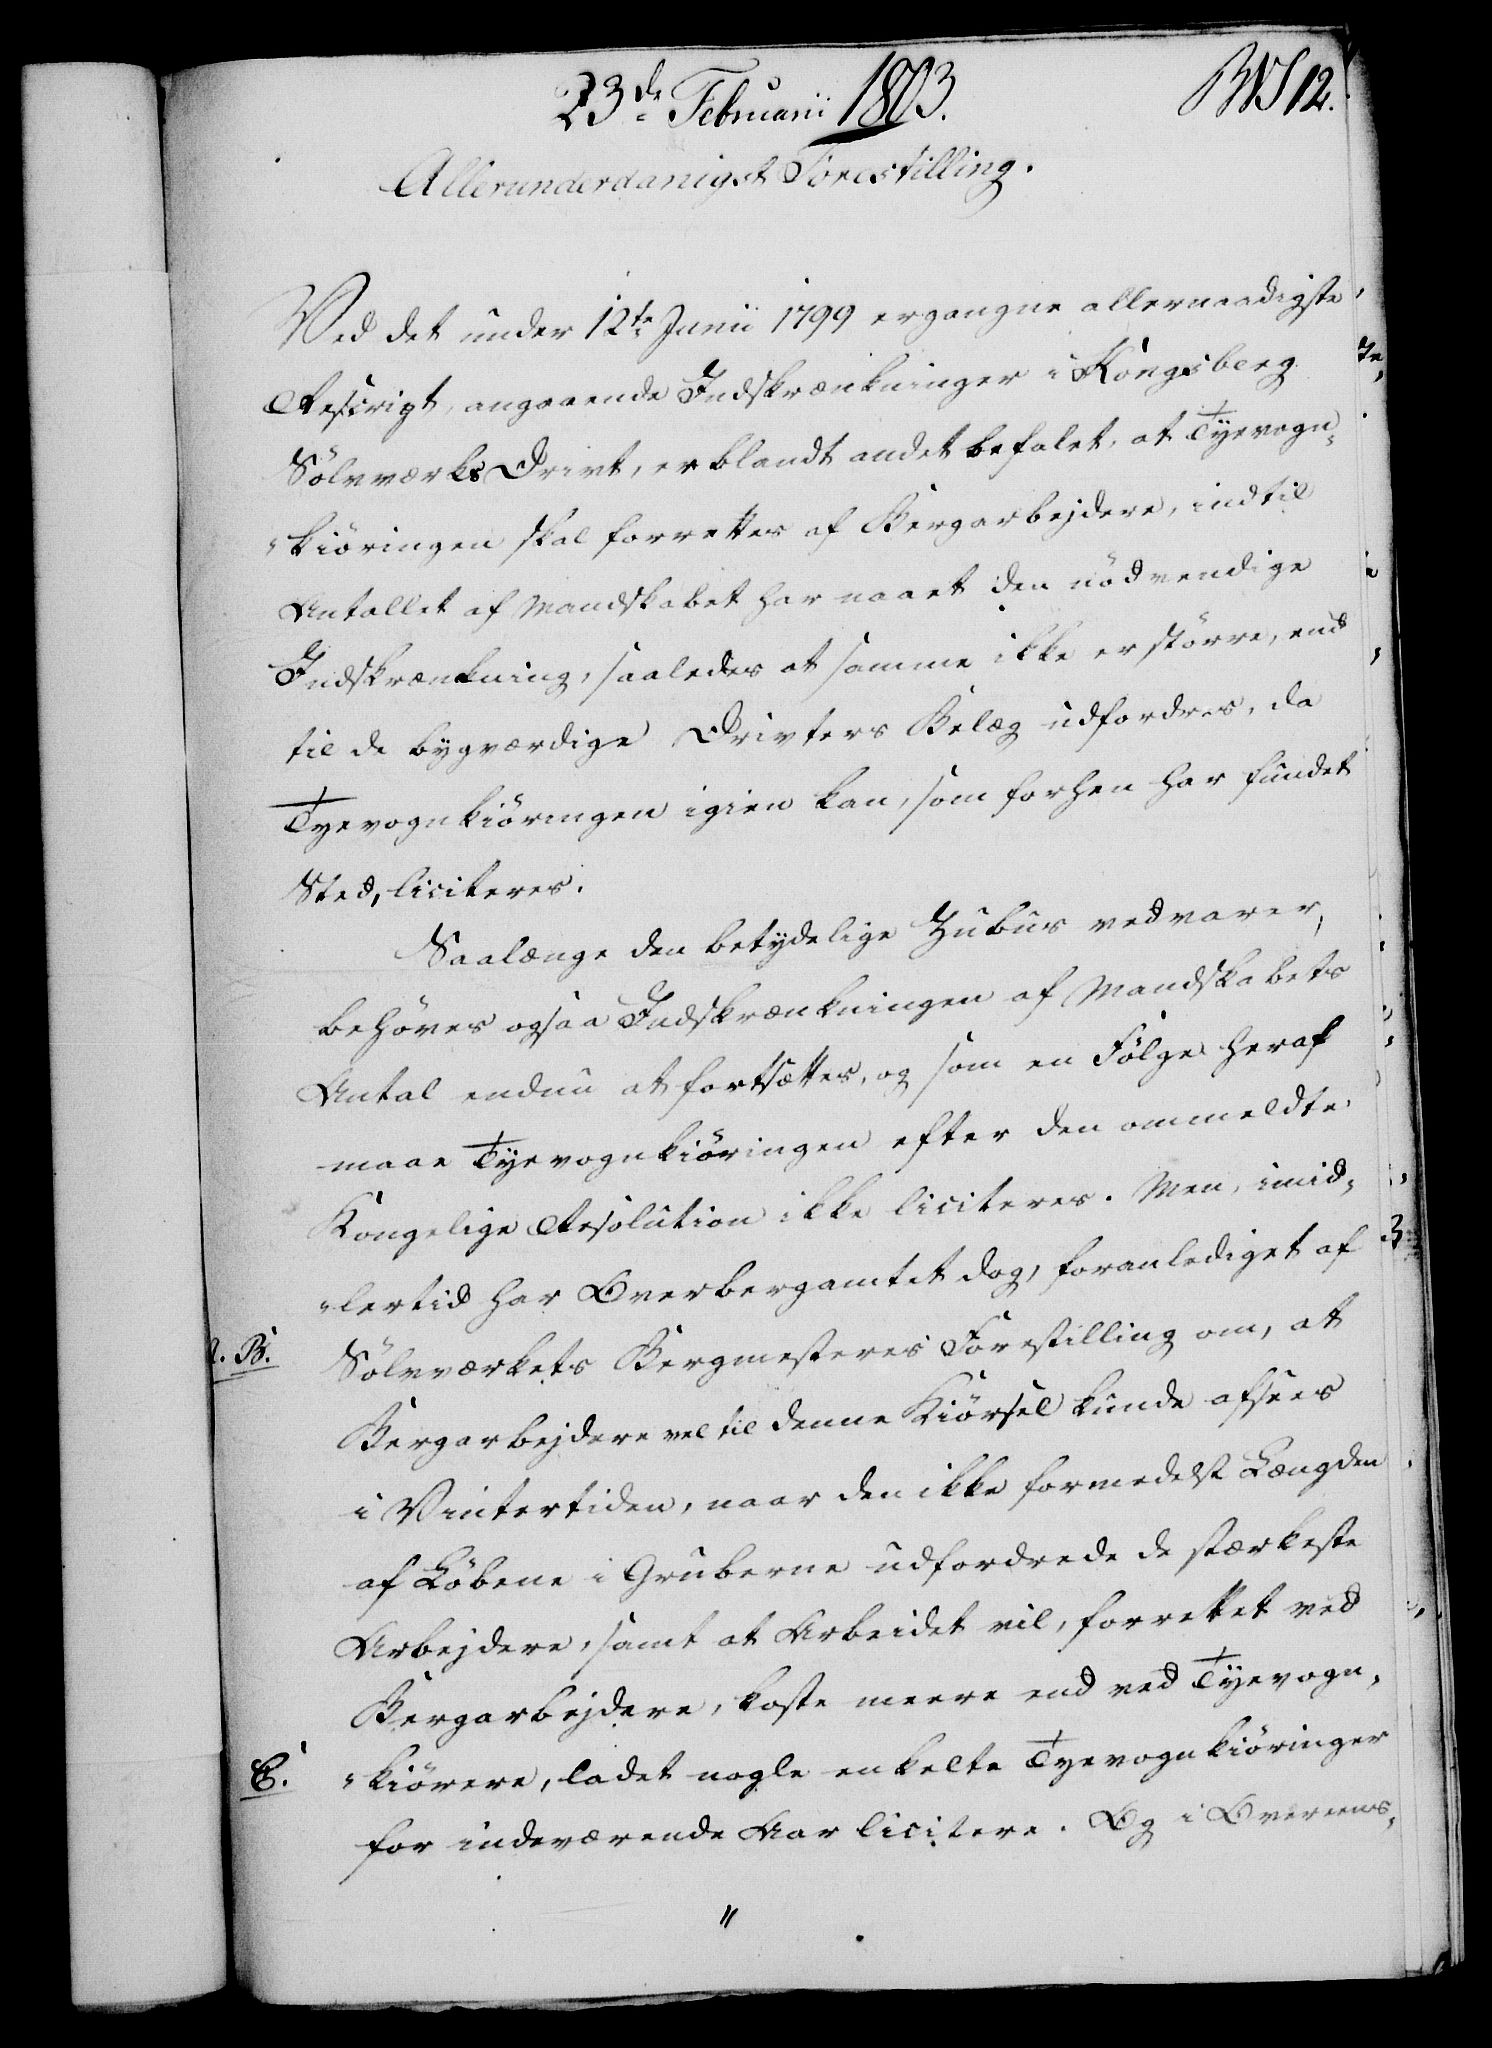 23de Februarii 1803.
Allerunderdanigst Forestilling.
Ved det under 12te Junii 1799 ergangne allernaadigste
Rescript, angaaende Indskrænkninger i Kongsberg
Sölvværks Drivt, er blandt andet befalet, at Tyevogn„
„kiöringen skal forrettes af Bergarbejdere, indtil
Antallet af Mandskabet har naaet den nödvendige
Indskrænkning, saaledes at samme ikke er större, end
til de bygværdige Drivters Belæg udfordres, da
Tyevognkiöringen igien kan, som forhen har fundet
Sted, liciteres.
Saalænge den betydelige Zubus vedvarer,
behöves ogsaa Indskrænkningen af Mandskabets
Antal endnu at fortsættes, og som en Fölge heraf
maae Tyevognkiöringen efter den ommeldte
Kongelige Resolution ikke liciteres. Men, imid„
„lertid har Overbergamtet dog, foranlediget af
B. Sölvværkets Bergmesteres Forestilling om, at
Bergarbejdere vel til denne Kiörsel kunde afsees
i Vintertiden, naar den ikke formedelst Længden
af Löbene i Gruberne udfordrede de stærkeste
Arbejdere, samt at Arbeidet vil, forrettet ved
Bergarbejdere, koste meere end ved Tyevogn„
C. „kiörere, ladet nogle enkelte Tyevognkiöringer
for indeværende Aar licitere. Og i Overeens„